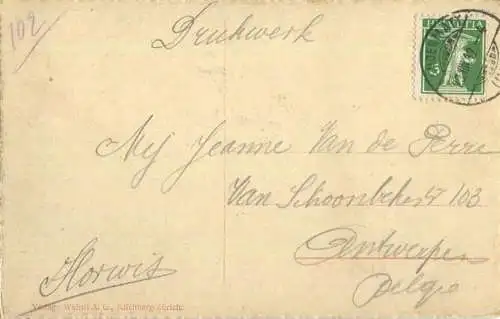 102
Drukwerk
HELVETIA
5
Mej Jeanne Van de Perre
Van Schoonbekest 103
Antwerpen
Belgie
Horwis
Verlag Wehrli A. G., Kilchberg-Zürich.